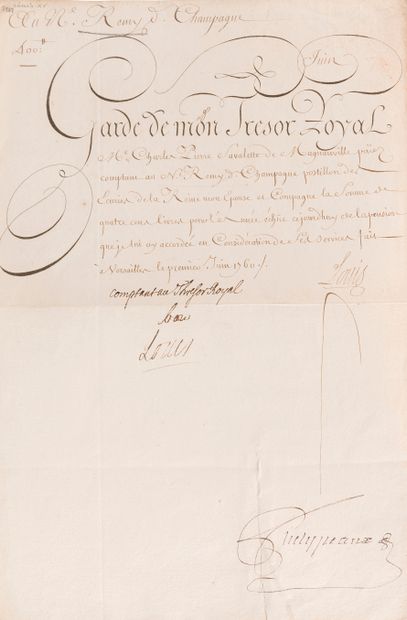 Au Sr. Remy de Champagne
400tt
Juin
Garde de mon Tresor Royal
Me. Charles Pierre Savalette de Magnanville païez
comptant au Sr. Remy de Champagne postillon des
Ecuries de la Reine mon Epouse et Compagne la Somme de
quatre cens livres pour année echüe cejourdhuy de la pension
que je luy ay accordée en Considération de ses services fait
à Versailles le premier Juin 1760
Louis
comptant au Thresor Royal
bon
Louis
Phelypeaux